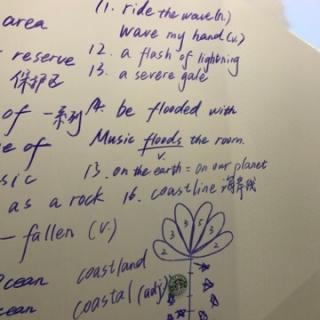 area
reserve
保护区
of 一系列
e of
sic
as a rock
— fallen (v.)
Ocean
cean
11. ride the wave (n.)
Wave my hand (v.)
12. a flash of lightning
13. a severe gale
14. be flooded with
Music floods the room.
v.
15. on the earth = on our planet
16. coastline 海岸线
2 3 3 5 3 2
coastland
coastal (adj)